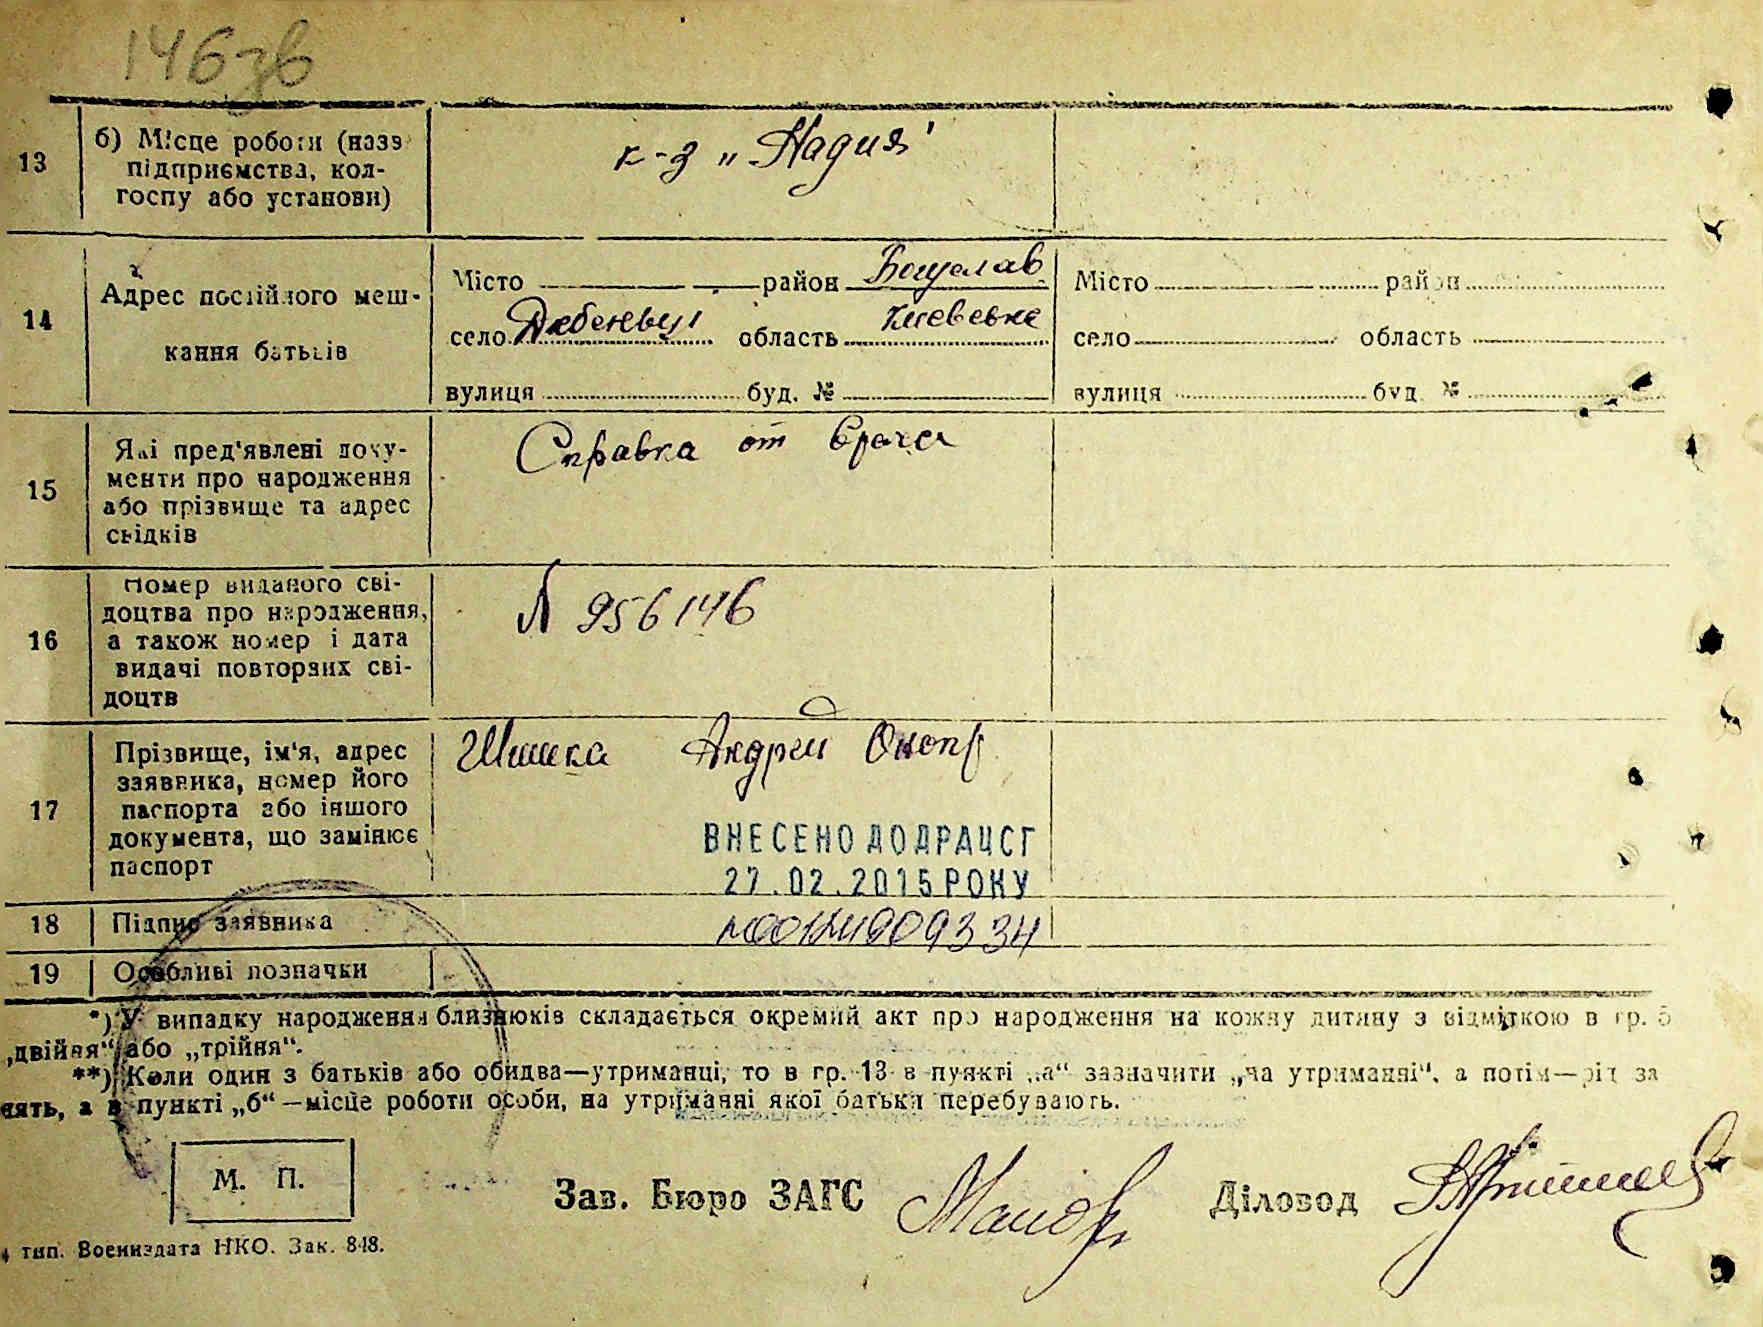 146зв
13
б) Місце роботи (назв
підприємства, кол-
госпу або установи)
к-з „Надия"
14
Адрес постійного меш-
кання батьків
Місто район Богуслав
село область Киевска
вулиця буд. №
Місто район
село область
вулиця буд. №
15
Які пред'явлені доку-
менти про народження
або прізвище та адрес
свідків
Справка от врача
16
Номер виданого сві-
доцтва про народження,
а також номер і дата
видачі повторних сві-
доцтв
№ 956146
17
Прізвище, ім'я, адрес
заявника, номер його
паспорта або іншого
документа, що замінює
паспорт
Шишка Андрей Онопр
ВНЕСЕНО ДО ДРАЦСГ
27.02.2015 РОКУ
18
Підпис заявника
№00124009334
19
Особливі позначки
*) У випадку народження близнюків складається окремий акт про народження на кожну дитину з відміткою в гр. 5
„двійня" або „трійня".
**) Коли один з батьків або обидва—утриманці, то в гр. 13 в пункті „а" зазначити „на утриманні", а потім—рід за
нять, а в пункті „б"—місце роботи особи, на утриманні якої батьки перебувають.
М. П.
Зав. Бюро ЗАГС
Діловод
4 тип. Воениздата НКО. Зак. 848.